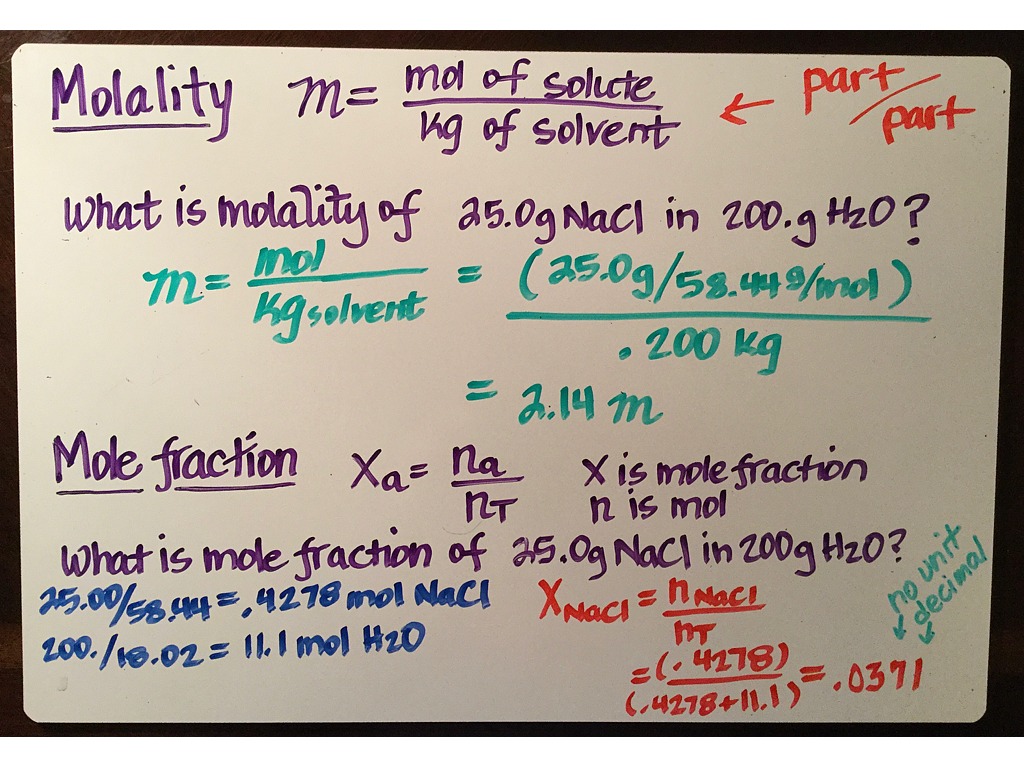 Molality m = mol of solute / kg of solvent ← part/part
What is molality of 25.0g NaCl in 200.g H2O?
m = mol / kg solvent = (25.0g/58.44g/mol) / .200 kg
= 2.14 m
Mole fraction Xa = na / nT X is mole fraction
n is mol
What is mole fraction of 25.0g NaCl in 200g H2O?
25.00/58.44 = .4278 mol NaCl
200./18.02 = 11.1 mol H2O
XNaCl = nNaCl / nT
= (.4278) / (.4278+11.1) = .0371
no unit
decimal